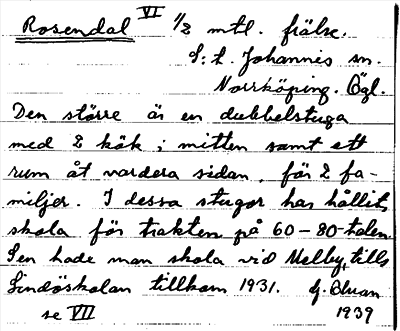 Rosendal VI 1/2 mtl. frälse.
S:t Johannis sn.
Norrköping. Ögl.
Den större är en dubbelstuga
med 2 kök i mitten samt ett
rum åt vardera sidan, för 2 fa-
miljer. I dessa stugor har hållits
skola för trakten på 60-80-talen
Sen hade man skola vid Melby, tills
Lindöskolan tillkom 1931.
se VII 1939